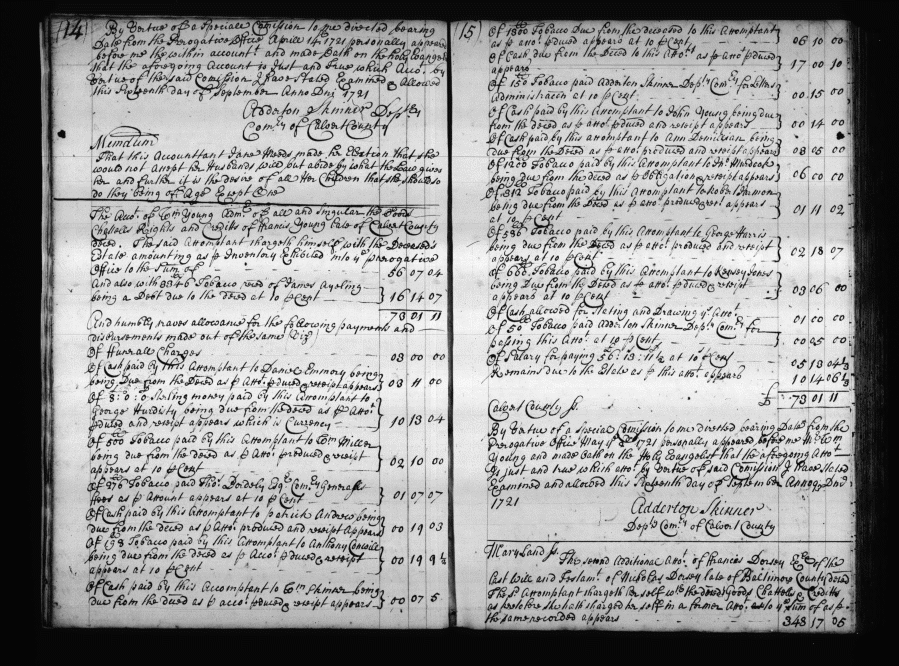 14
By Vertue of a Speciall Comission to me directed bearing
Date from the Prerogative Office April 14 1721 personally appeared
before me the within accountt. and made Oath on the holy Evangelst
that the afforegoing Account is Just and True which Acco. by
Vertue of the said Comission I have Stated Examined & Allowed
this Fifteenth day of September Anno Dni 1721
Adderton Skiner Depty
Comry of Calvert County
Mimdum
That this Accountant Jane made her Election that she
would not accept her Husbands will but abide by what the Law gives
her and further it is the desire of all Her Children that She should so
do they being of Age Except One
The Acco. of Wm Young Admr of all and Singular the Goods
Chattels Rights and Credits of Francis Young late of Calvert County
deced. The said Accomptant chargeth himself with the Deceaseds
Estate amounting as p Inventory Exhibited into ye prerogative
Office to the Sum of 56 07 04
And also with 3346 Tobacco reced of James
being a Debt due to the deced at 10 p Cent } 16 14 07
73 01 11
And humbly craves allowance for the following payments and
disbursments made out of the same Viz
Of Funerall Charges 03 00 00
Of Cash paid by this Accomptant to Daniel Emmory being
being Due from the Deced as p Acco. pduced & receipt appears } 03 11 00
Of 8:0:0 Sterling money paid by this Accomptant to
George Hardisty being due from the deced as p Acco.
pduced and receipt appears which is Currency } 10 13 04
Of 500 Tobacco paid by this Accomptant to Wm Miller
being due from the deced as p Acco. produced & receipt
appears at 10 p Cent } 02 10 00
Of 276 Tobacco paid Tho. Bordely Esqr Comry Generalls
ffees as p Account appears at 10 p Cent } 01 07 07
Of Cash paid by this Accomptant to patrick Andrew being
due from the deced as p Acco. produced and receipt appears } 00 19 03
Of 198 Tobacco paid by this Accomptant to Anthony
being due from the deced as p Acco. pduced & receipt
appears at 10 p Cent } 00 19 9½
Of Cash paid by this Accomptant to Wm Skinner being
due from the deced as p acco. pduced & receipt appears } 00 07 5
15
Of 1300 Tobacco Due from the deceased to this Accomptant
as p acco. pduced appears at 10 p Cent } 06 10 00
Of Cash due from the Deced to this Acco. as p acco pduced
appears } 17 00 10
Of 150 Tobacco paid Adderton Skiner Depty Comry for Letters
Administracon at 10 p Cent } 00 15 00
Of Cash paid by this Accomptant to John Young being due
from the deced as p acco. pduced and receipt appears } 00 14 00
Of Cash paid by this accomptant to Ann being
due from the Deced as p acco. produced and receipt appears } 03 05 00
Of 1200 Tobacco paid by this Accomptant to Jno.
being due from the deced as p Obligation & receipt appears } 06 00 00
Of 312 Tobacco paid by this Accomptant to Robt
being due from the Deced as p acco. produced & rect. appears
at 10 p Cent } 01 11 02
Of 586 Tobacco paid by this Accomptant to George Harris
being due from the Deced as p acco. produced and receipt
appears at 10 p Cent } 02 18 07
Of 660 Tobacco paid by this Accomptant to Jones
being Due from the Deced as p acco. pduced & receipt
appears at 10 p Cent } 03 06 00
Of Cash allowed for Stating and Drawing ys Acco. 01 00 00
Of 50 Tobacco paid Adderton Skiner Depty Comry for
passing this Acco. at 10 p Cent } 00 05 00
Of Salary for paying 56:13:11½ at 10 p Cent 05 13 04⅓
Remains due to the Estate as p this acco. appears 10 14 06⅓
£ 73 01 11
Calvert County ss.
By Vertue of a Special Comission to me directed bearing Date from the
Prerogative Office May 1721 personally appeared before me Mr Wm
Young and made Oath on the Holy Evangelist that the aforegoing Acco.
is just and true which acco. by Vertue of said Comission I Have Stated
Examined and allowed this Fifteenth day of September Annoq Dni
1721
Adderton Skinner
Depty Comry of Calvert County
Maryland ss.
The Second Additional Acco. of Francis Dorsey Exx of the
last Will and Testamt. of Nicholas Dorsey late of Baltimore County deced
The sd. Accomptant chargeth her self with the deced Goods Chattels & Credits
as heretofore she hath charged her self in a former Acco. to ye Sum of as p
the same recorded appears 343 17 05